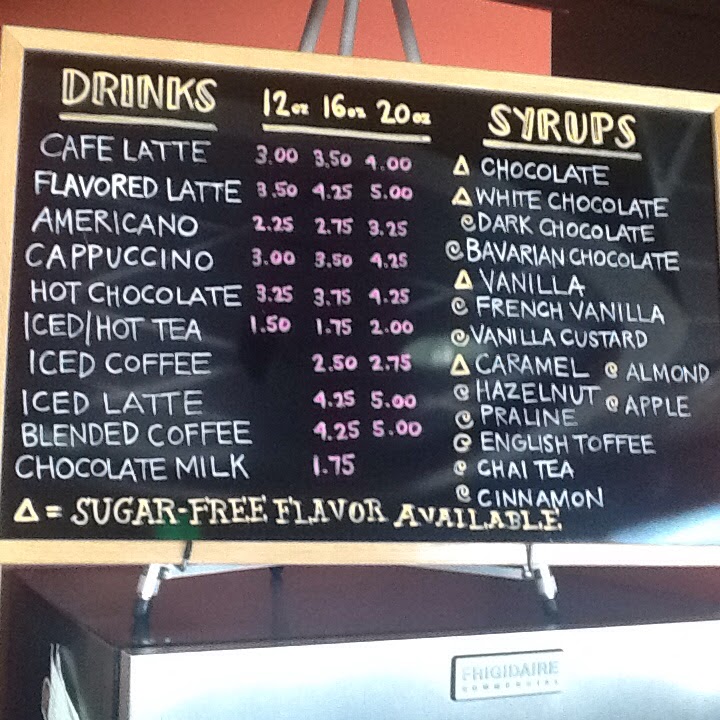 DRINKS 12oz 16oz 20oz
CAFE LATTE 3.00 3.50 4.00
FLAVORED LATTE 3.50 4.25 5.00
AMERICANO 2.25 2.75 3.25
CAPPUCCINO 3.00 3.50 4.25
HOT CHOCOLATE 3.25 3.75 4.25
ICED/HOT TEA 1.50 1.75 2.00
ICED COFFEE 2.50 2.75
ICED LATTE 4.25 5.00
BLENDED COFFEE 4.25 5.00
CHOCOLATE MILK 1.75
SYRUPS
Δ CHOCOLATE
Δ WHITE CHOCOLATE
DARK CHOCOLATE
BAVARIAN CHOCOLATE
Δ VANILLA
FRENCH VANILLA
VANILLA CUSTARD
Δ CARAMEL
HAZELNUT
PRALINE
ENGLISH TOFFEE
CHAI TEA
CINNAMON
ALMOND
APPLE
Δ = SUGAR-FREE FLAVOR AVAILABLE
FRIGIDAIRE
COMMERCIAL